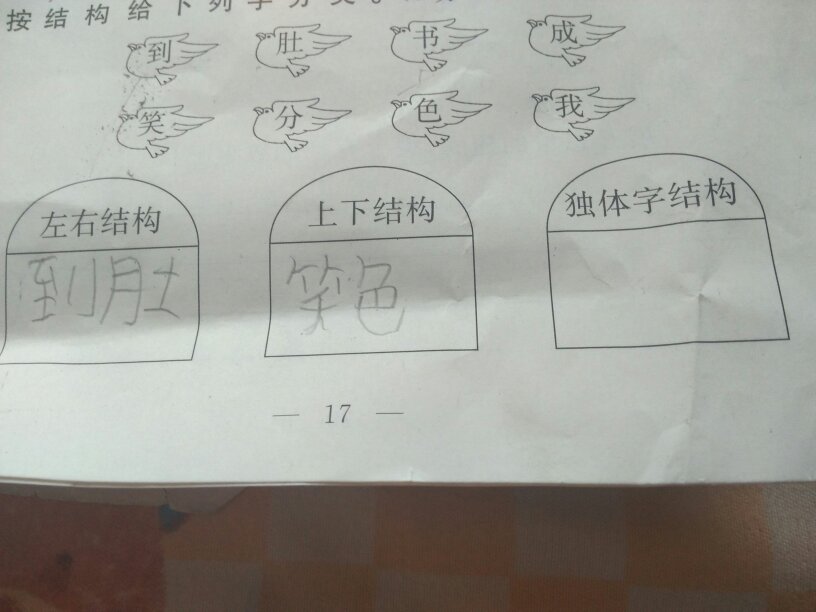 按结构给下列字分类。
到 肚 书 成
笑 分 色 我
左右结构 上下结构 独体字结构
到肚 笑色
— 17 —